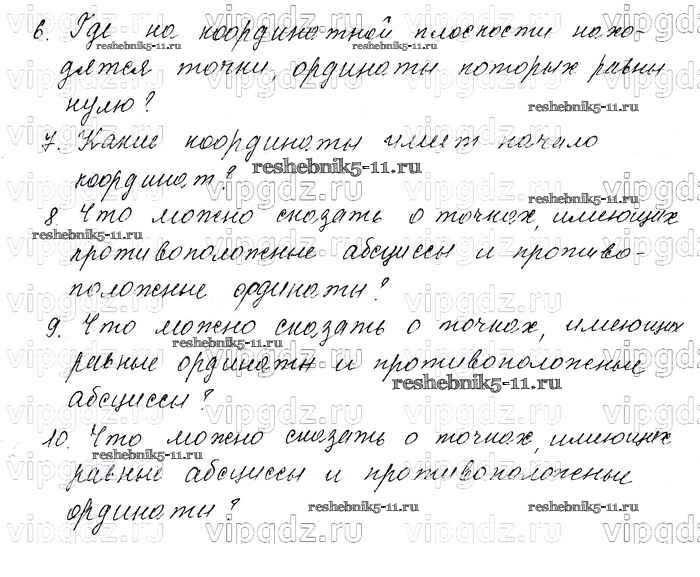 6. Где на координатной плоскости нахо-
дятся точки, ординаты которых равны
нулю?
7. Какие координаты имеет начало
координат?
8 Что можно сказать о точках, имеющих
противоположные абсциссы и противо-
положные ординаты?
9. Что можно сказать о точках, имеющих
равные ординаты и противоположные
абсциссы?
10. Что можно сказать о точках, имеющих
равные абсциссы и противоположные
ординаты?
reshebnik5-11.ru
vipgdz.ru